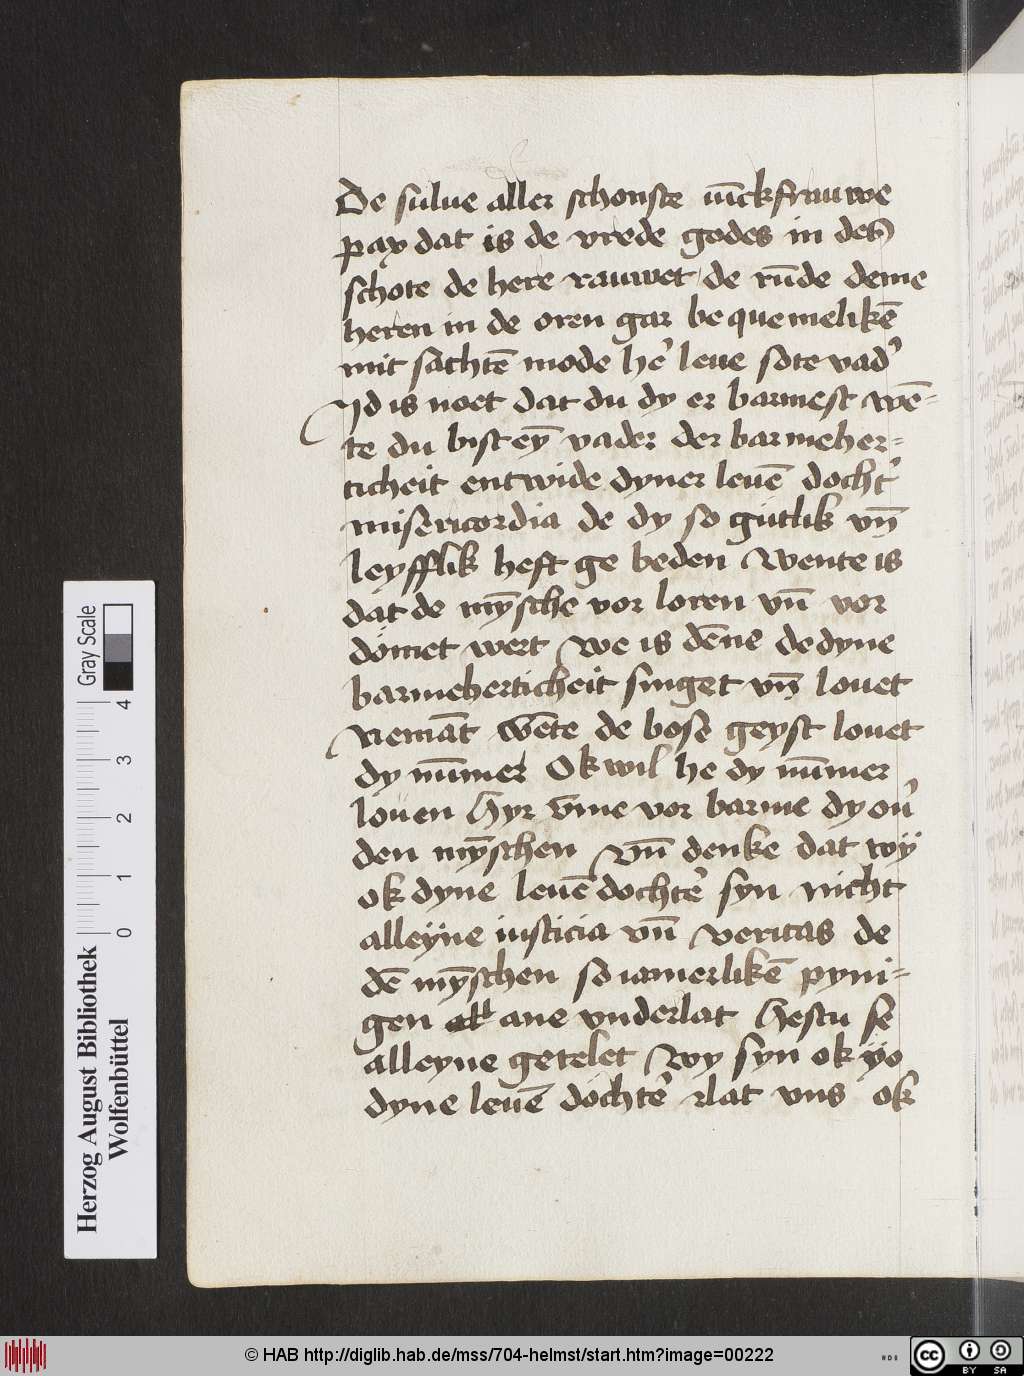 De sulue aller schonste iu̅ckfrauwe
pax dat is de vrede godes in des
schote de here rauwet de ru̅de deme
heren in de oren gar be quemelike̅
mit sachte̅ mode he᷑ leue sote vad᷑
Id is noet dat du dy er barmest we̅=
te du bist ey̅ vader der barmeher=
ticheit entwide dyner leue̅ docht᷑
misericordia de dy so gutlik vn̅
leyfflik heft ge beden Wente is
dat de my̅sche vor loren vn̅ vor
dömet wert We is de̅ne de dyne
barmeherticheit singet vn̅ louet
Niema̅t we̅te de bose geyst louet
dy nu̅mer Ok wil he dy nu̅mer
louen Hyr v̅me vor barme dy ou᷑
den my̅schen Vn̅ denke dat wÿ
ok dyne leue̅ dochte᷑ syn nicht
alleyne iusticia vn̅ veritas de
de̅ my̅schen so iamerlike̅ pyni=
gen ane vnderlat Hestu se
alleyne getelet Wy syn ok yo
dyne leue̅ dochte᷑ lat vns ok
Gray Scale
0 1 2 3 4
Herzog August Bibliothek
Wolfenbüttel
© HAB http://diglib.hab.de/mss/704-helmst/start.htm?image=00222
cc BY SA